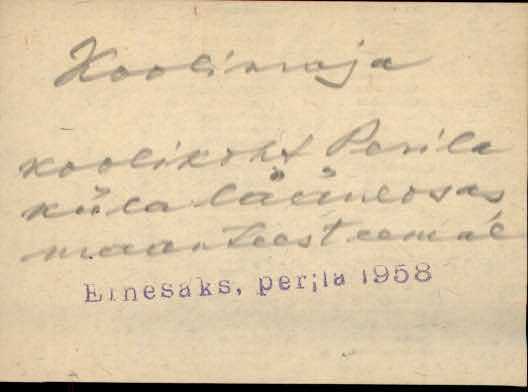 Koolimaja
koolikoht Perila
küla lääneosas
maanteest eemal
Ernesaks, perila 1958